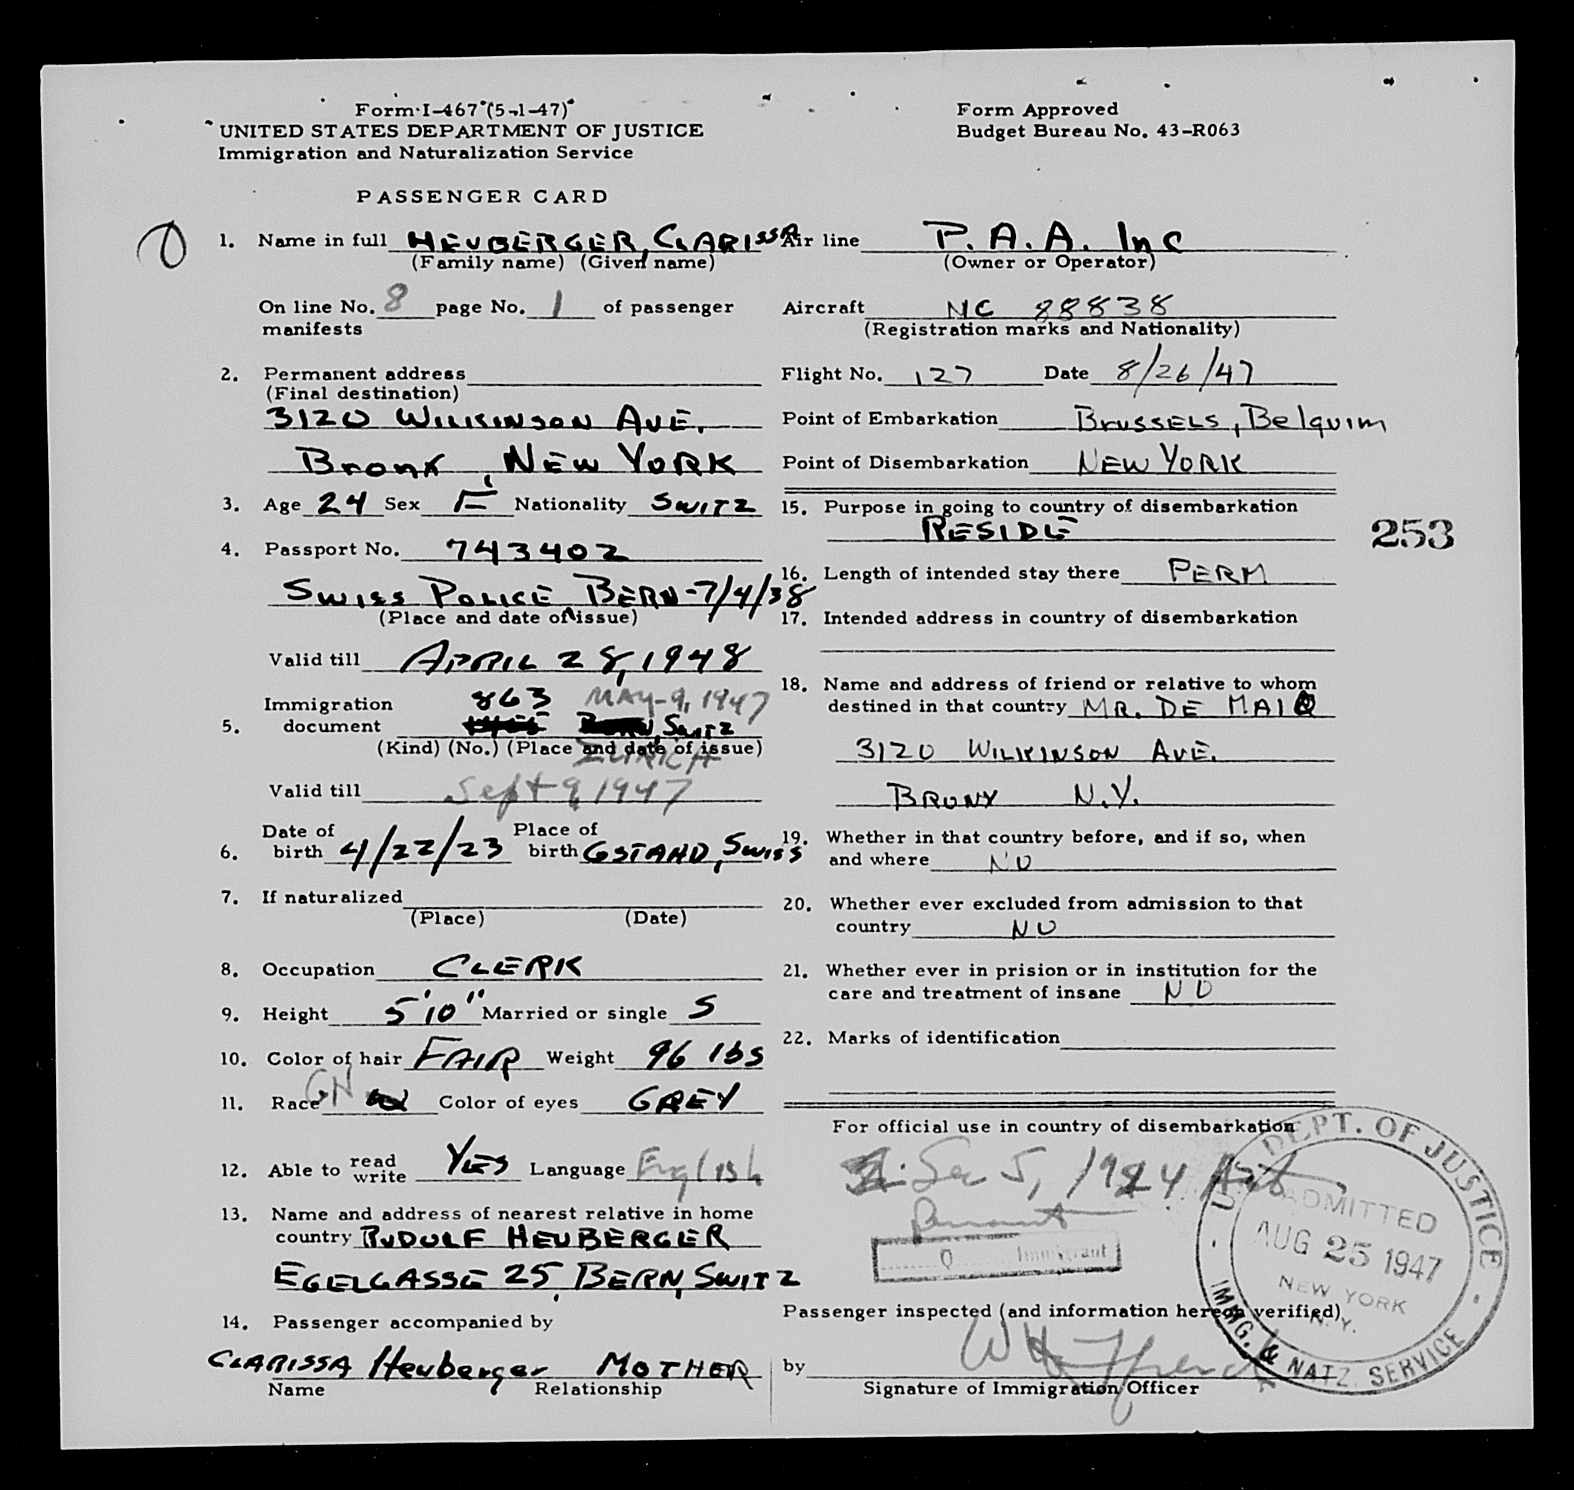 Form I-467 (5-1-47)
UNITED STATES DEPARTMENT OF JUSTICE
Immigration and Naturalization Service
Form Approved
Budget Bureau No. 43-R063
PASSENGER CARD
1. Name in full HEUBERGER, CLARISSA
(Family name) (Given name)
On line No. 8 page No. 1 of passenger
manifests
2. Permanent address
(Final destination)
3120 WILKINSON AVE.
Bronx, NEW YORK
3. Age 24 Sex F Nationality SWITZ
4. Passport No. 743402
SWISS POLICE BERN-7/4/38
(Place and date of issue)
Valid till APRIL 28, 1948
Immigration 863 MAY-9, 1947
5. document SWITZ
(Kind) (No.) (Place and date of issue)
ZURICH
Valid till Sept 9, 1947
6. Date of birth 4/22/23 Place of birth GSTAAD, SWISS
7. If naturalized
(Place) (Date)
8. Occupation CLERK
9. Height 5'10" Married or single S
10. Color of hair FAIR Weight 96 lbs
11. Race Color of eyes GREY
12. Able to read write YES Language English
13. Name and address of nearest relative in home
country RUDOLF HEUBERGER
EGELGASSE 25, BERN, SWITZ
14. Passenger accompanied by
CLARISSA Heuberger MOTHER
Name Relationship
Air line P.A.A. Inc
(Owner or Operator)
Aircraft NC 88838
(Registration marks and Nationality)
Flight No. 127 Date 8/26/47
Point of Embarkation BRUSSELS, Belguim
Point of Disembarkation NEW YORK
15. Purpose in going to country of disembarkation
RESIDE
253
16. Length of intended stay there PERM
17. Intended address in country of disembarkation
18. Name and address of friend or relative to whom
destined in that country MR. DE MAIO
3120 WILKINSON AVE.
BRONX N.Y.
19. Whether in that country before, and if so, when
and where NO
20. Whether ever excluded from admission to that
country NO
21. Whether ever in prision or in institution for the
care and treatment of insane NO
22. Marks of identification
For official use in country of disembarkation
Sec 5, 1924 Act
Immigrant
U.S. DEPT. OF JUSTICE
ADMITTED
AUG 25 1947
NEW YORK
N.Y.
IMMG. & NATZ. SERVICE
Passenger inspected (and information hereon verified)
by
Signature of Immigration Officer